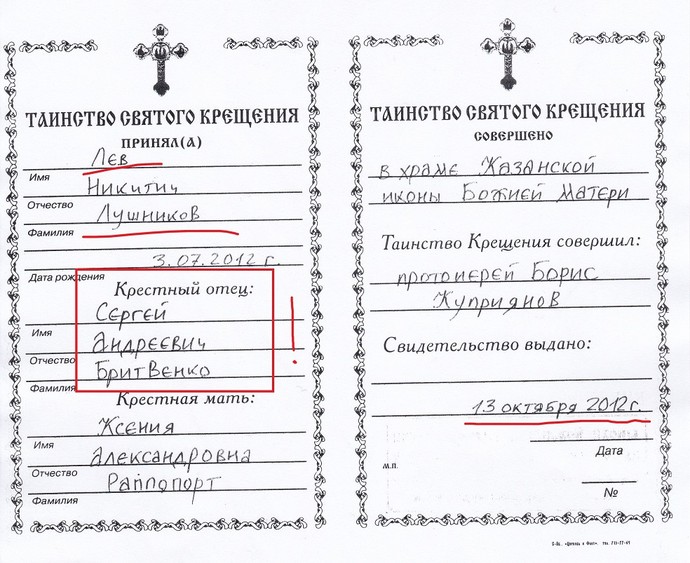 ТАИНСТВО СВЯТОГО КРЕЩЕНИЯ
ПРИНЯЛ(А)
Лев
Имя
Никитич
Отчество
Лушников
Фамилия
3.07.2012 г.
Дата рождения
Крестный отец:
Сергей
Имя
Андреевич
Отчество
Бритвенко
Фамилия
Крестная мать:
Ксения
Имя
Александровна
Отчество
Раппопорт
Фамилия
!
ТАИНСТВО СВЯТОГО КРЕЩЕНИЯ
СОВЕРШЕНО
в храме Казанской
иконы Божией Матери
Таинство Крещения совершил:
протоиерей Борис
Куприянов
Свидетельство выдано:
13 октября 2012г.
Дата
м.п.
№